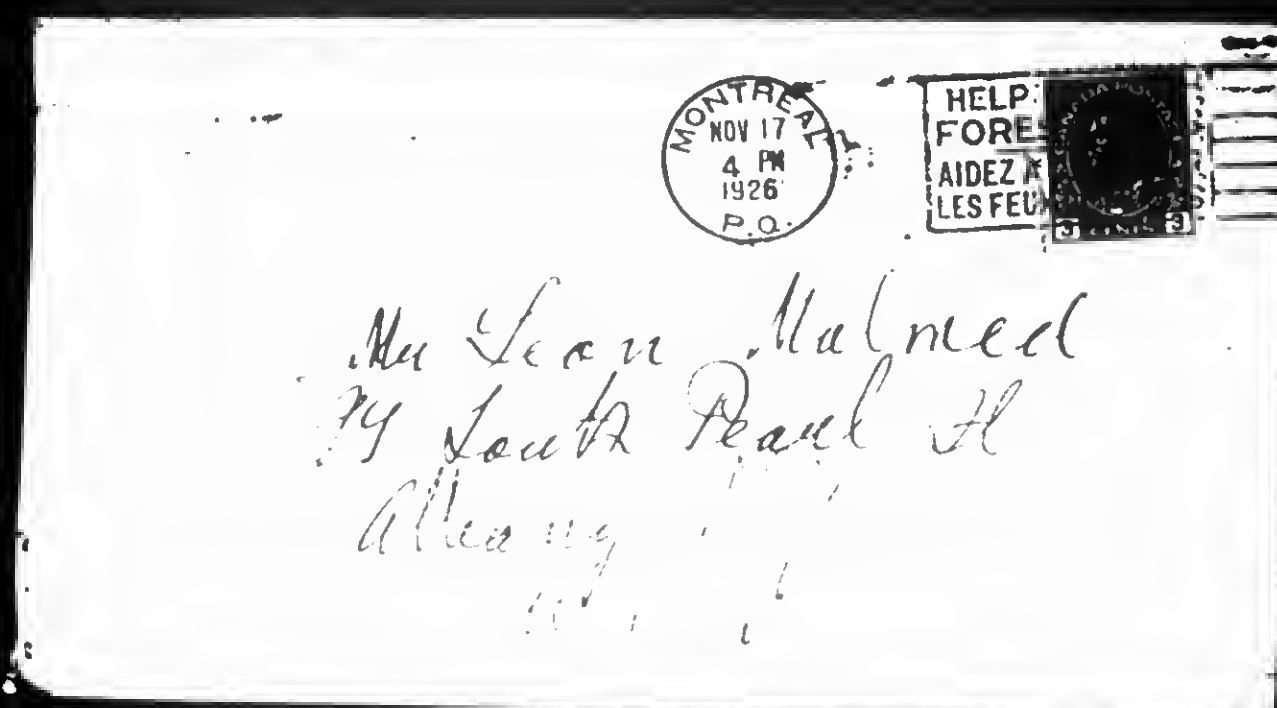 MONTREAL
NOV 17
4 PM
1926
P.Q.
HELP
FORE
AIDEZ A
LES FEU
CANADA POSTAGE
3 CENTS 3
Mr Leon Malmed
South Pearl St
Albany